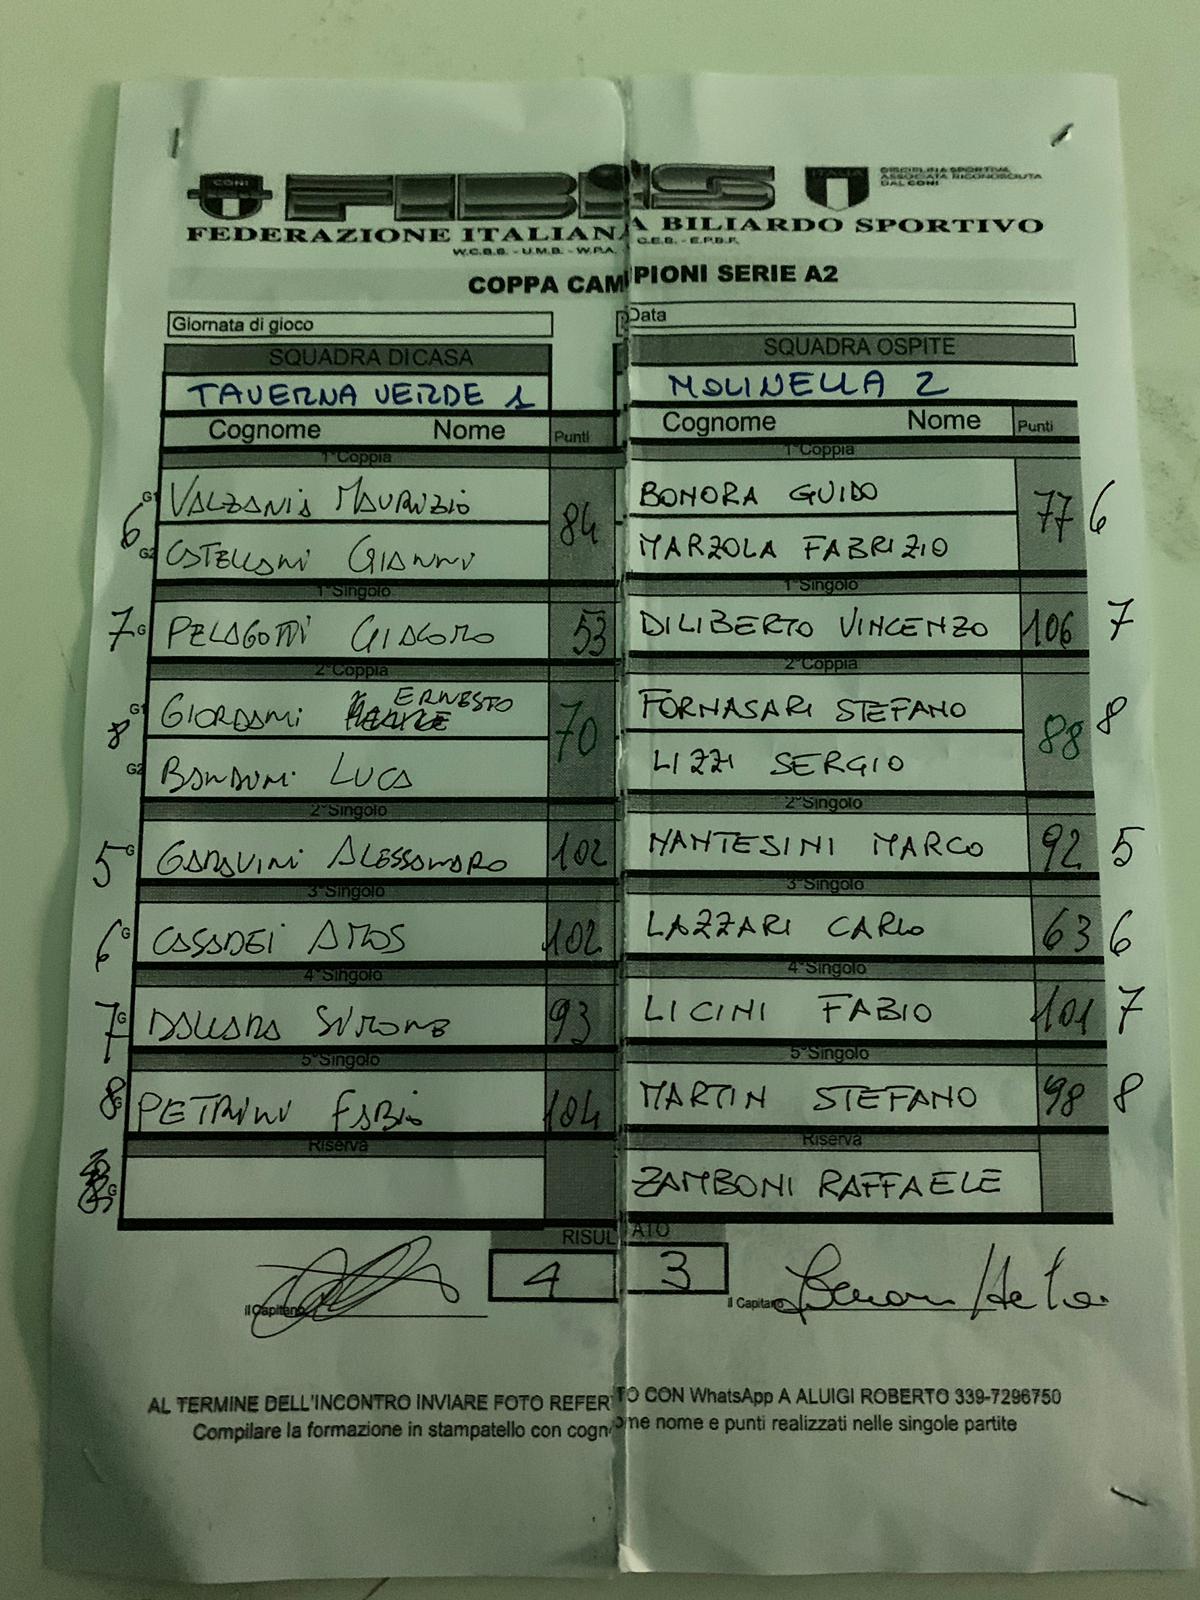 CONI
FIBiS
ITALIA
DISCIPLINA SPORTIVA
ASSOCIATA RICONOSCIUTA
DAL CONI
FEDERAZIONE ITALIANA BILIARDO SPORTIVO
W.C.B.S. - U.M.B. - W.P.A. C.E.B. - E.P.B.F.
COPPA CAMPIONI SERIE A2
Giornata di gioco Data
SQUADRA DI CASA SQUADRA OSPITE
TAVERNA VERDE 1 MOLINELLA 2
Cognome Nome Punti Cognome Nome Punti
1°Coppia 1°Coppia
G1 VALZANIA MAURIZIO BONORA GUIDO
6 84 77 6
G2 CASTELLANI GIANNI MARZOLA FABRIZIO
1°Singolo 1°Singolo
7 G PELAGOTTI GIACOMO 53 DILIBERTO VINCENZO 106 7
2°Coppia 2°Coppia
G1 GIORDANI ERNESTO FORNASARI STEFANO
8 70 88 8
G2 BANDINI LUCA LIZZI SERGIO
2°Singolo 2°Singolo
5 G GARAVINI ALESSANDRO 102 MANTESINI MARCO 92 5
3°Singolo 3°Singolo
6 G CASADEI AMOS 102 LAZZARI CARLO 63 6
4°Singolo 4°Singolo
7 G DALLARA SIMONE 93 LICINI FABIO 101 7
5°Singolo 5°Singolo
8 G PETRINI FABIO 104 MARTIN STEFANO 98 8
Riserva Riserva
G ZAMBONI RAFFAELE
RISULTATO
4 3
il Capitano il Capitano
AL TERMINE DELL'INCONTRO INVIARE FOTO REFERTO CON WhatsApp A ALUIGI ROBERTO 339-7296750
Compilare la formazione in stampatello con cognome nome e punti realizzati nelle singole partite